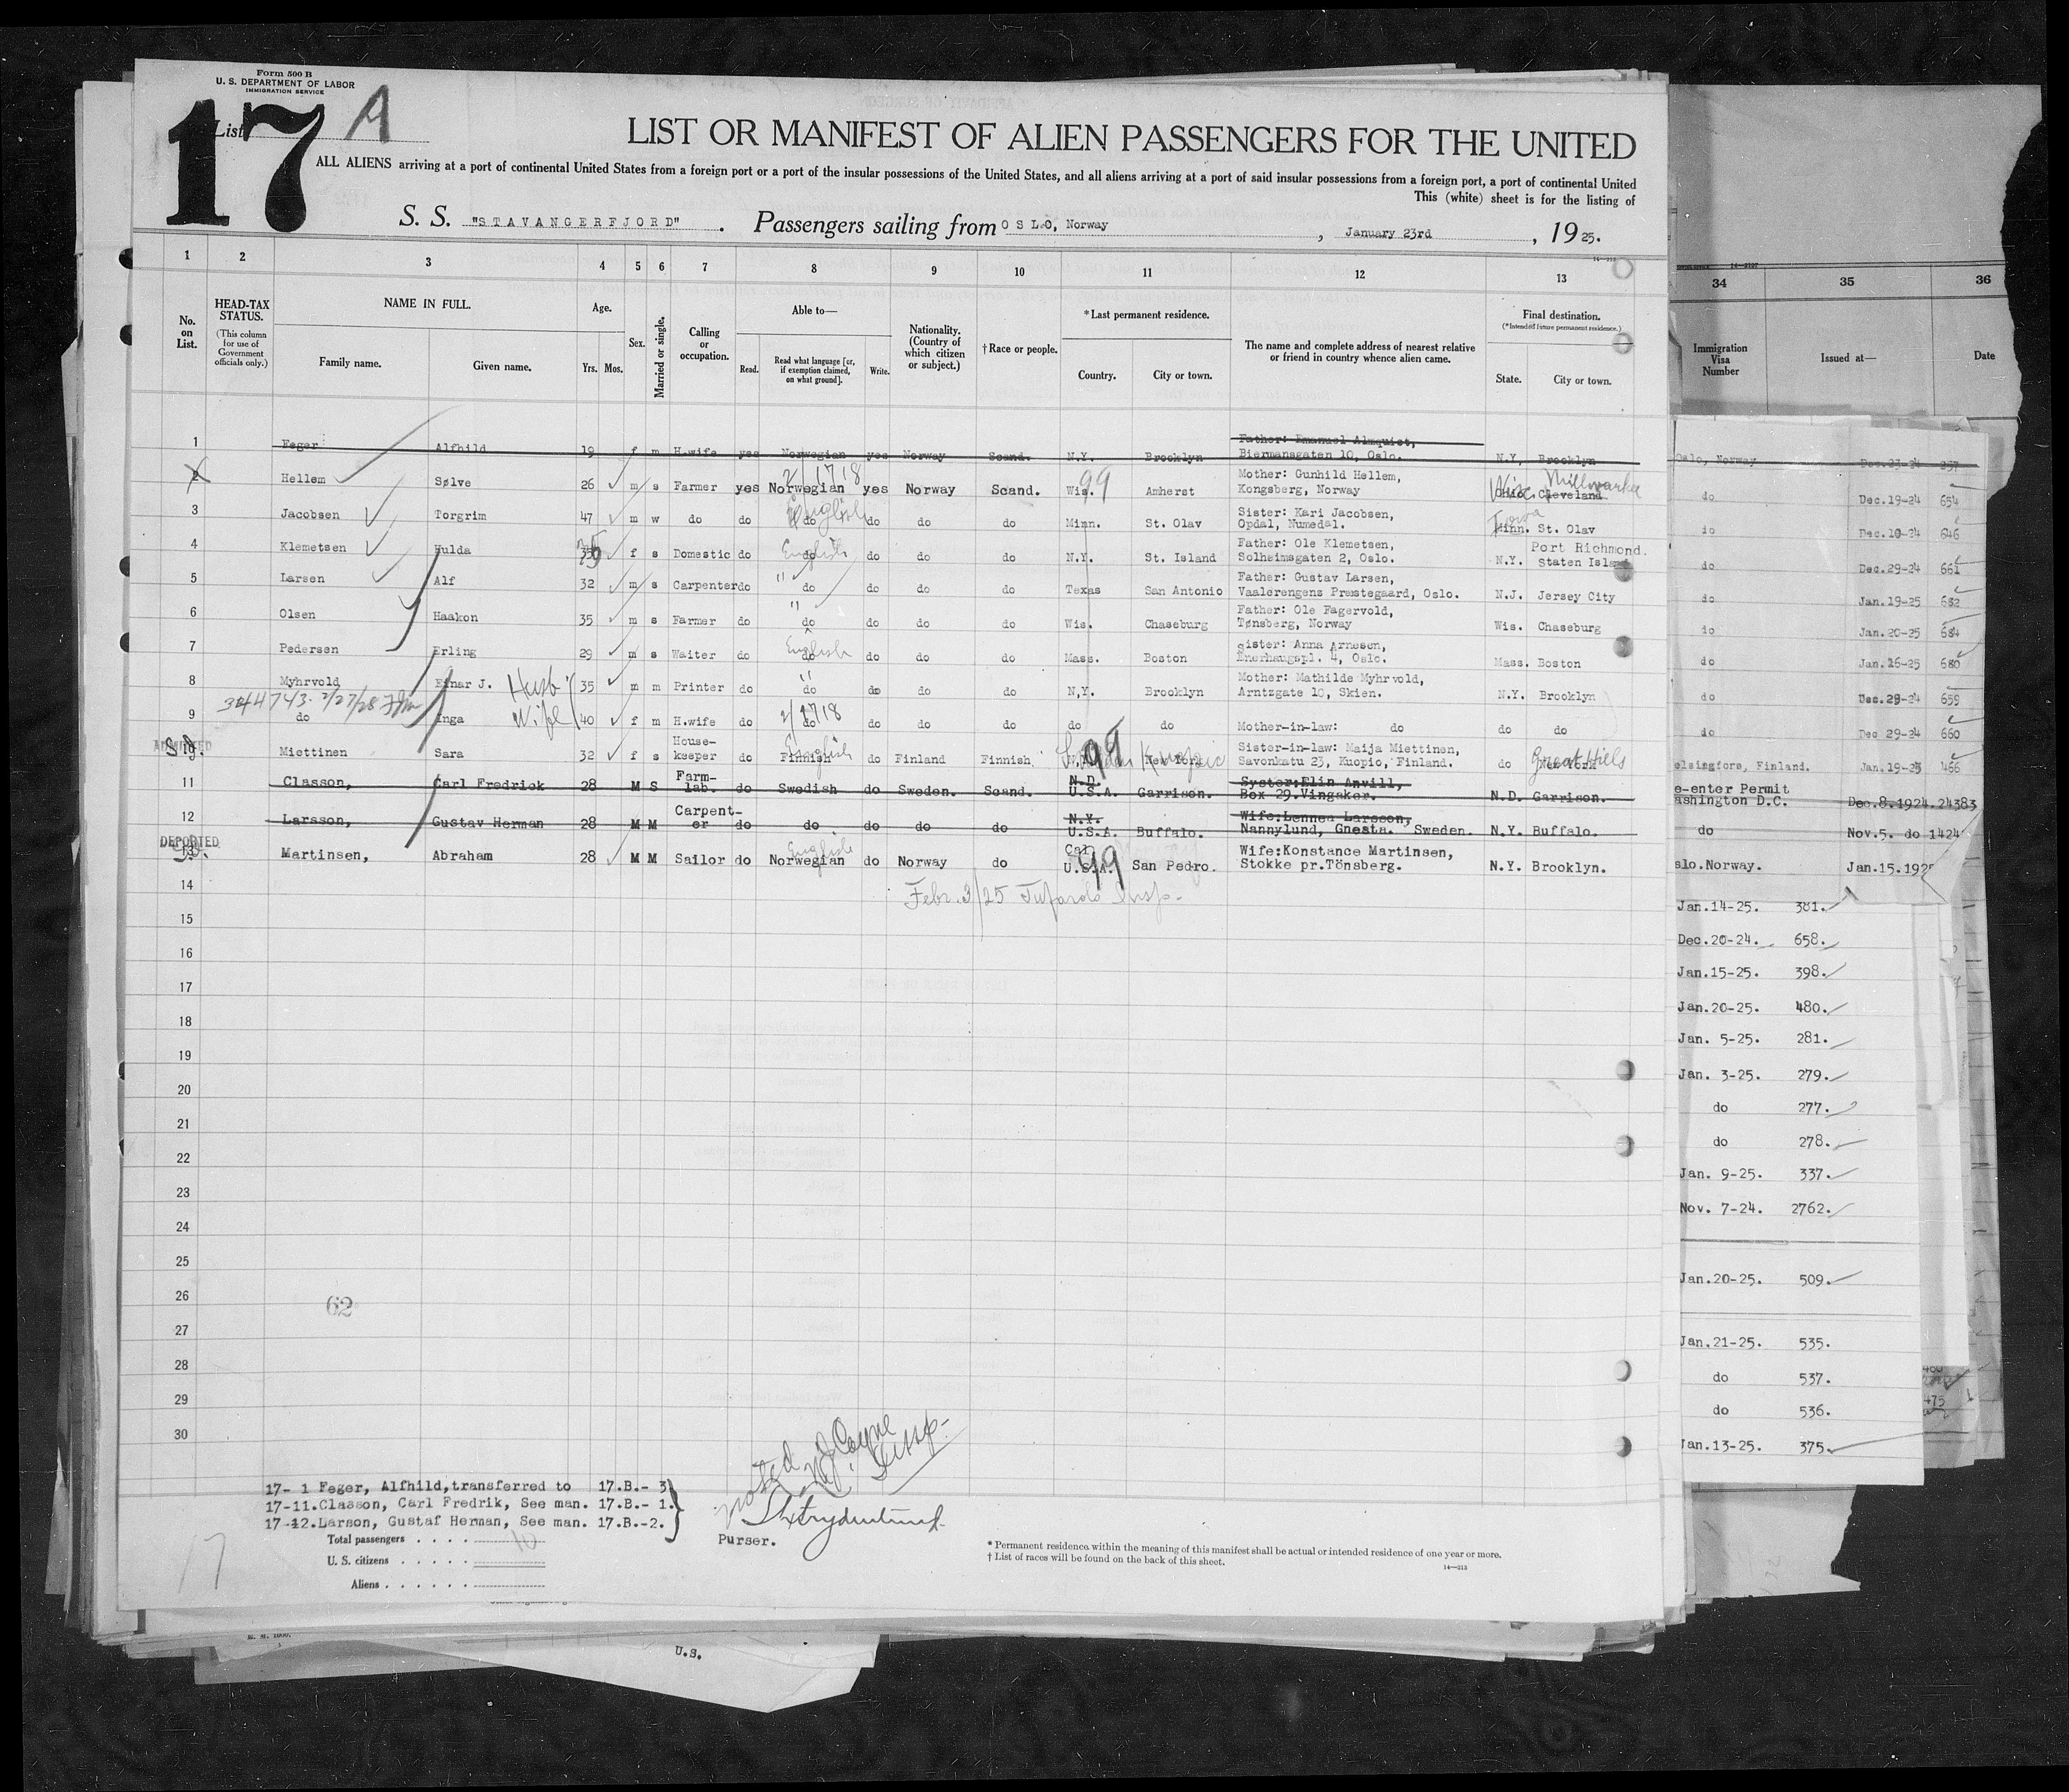 Form 500 B
U. S. DEPARTMENT OF LABOR
IMMIGRATION SERVICE
List 17 A
LIST OR MANIFEST OF ALIEN PASSENGERS FOR THE UNITED
ALL ALIENS arriving at a port of continental United States from a foreign port or a port of the insular possessions of the United States, and all aliens arriving at a port of said insular possessions from a foreign port, a port of continental United
This (white) sheet is for the listing of
S. S. "STAVANGERFJORD". Passengers sailing from OSLO, Norway, January 23rd, 1925.
1 2 3 4 5 6 7 8 9 10 11 12 13 34 35 36
No. on List.
HEAD-TAX STATUS.
(This column for use of Government officials only.)
NAME IN FULL.
Family name. Given name.
Age.
Yrs. Mos.
Sex.
Married or single.
Calling or occupation.
Able to—
Read. Read what language [or, if exemption claimed, on what ground]. Write.
Nationality. (Country of which citizen or subject.)
†Race or people.
*Last permanent residence.
Country. City or town.
The name and complete address of nearest relative or friend in country whence alien came.
Final destination.
(*Intended future permanent residence.)
State. City or town.
Immigration Visa Number
Issued at—
Date
1 Feger Alfhild 19 f m H.wife yes Norwegian yes Norway Scand. N.Y. Brooklyn Father: Emanuel Almquist, Biermansgaten 10, Oslo. N.Y. Brooklyn Oslo, Norway Dec.23-24 257
2 Hellem Sølve 26 m s Farmer yes Norwegian yes Norway Scand. Wis. 99 Amherst Mother: Gunhild Hellem, Kongsberg, Norway Ohio Cleveland Wisc. Millwaukee do Dec.19-24 654
3 Jacobsen Torgrim 47 m w do do do English do do do Minn. St. Olav Sister: Kari Jacobsen, Opdal, Numedal. Minn. Iowa St. Olav do Dec.10-24 646
4 Klemetsen Hulda 35 f s Domestic do do English do do do N.Y. St. Island Father: Ole Klemetsen, Solheimsgaten 2, Oslo. N.Y. Port Richmond. Staten Island do Dec.29-24 661
5 Larsen Alf 32 m s Carpenter do " do do do do Texas San Antonio Father: Gustav Larsen, Vaalerengens Præstegaard, Oslo. N.J. Jersey City do Jan.19-25 682
6 Olsen Haakon 35 m s Farmer do " do do do do Wis. Chaseburg Father: Ole Fagervold, Tønsberg, Norway Wis. Chaseburg do Jan.20-25 684
7 Pedersen Erling 29 m s Waiter do English do do do do Mass. Boston Sister: Anna Arnesen, Enerhaugspl. 4, Oslo. Mass. Boston do Jan.16-25 680
8 Myhrvold Einar J. Husb 35 m m Printer do " do do do do N.Y. Brooklyn Mother: Mathilde Myhrvold, Arntzgate 10, Skien. N.Y. Brooklyn do Dec.29-24 659
9 do Inga Wife 40 f m H.wife do do do do do do do Mother-in-law: do do do do Dec 29-24 660
ADMITTED
10 Miettinen Sara 32 f s House-keeper do Finnish English do Finland Finnish 99 New York Kuopio Sister-in-law: Maija Miettinen, Savonkatu 23, Kuopio, Finland. do New York Great Hills Helsingfors, Finland. Jan.19-25 466
11 Classon, Carl Fredrick 28 M S Farm-lab. do Swedish do Sweden. Scand. N.D. U.S.A. Garrison. Syster:Elin Anvill, Box 29.Vingaker. N.D. Garrison. Re-enter Permit Washington D.C. Dec.8.1924.24383
12 Larsson, Gustav Herman 28 M M Carpent-er do do do do do N.Y. U.S.A. Buffalo. Wife:Lennea Larsson, Nannylund, Gnesta. Sweden. N.Y. Buffalo. do Nov.5. do 1424
DEPORTED
13 Martinsen, Abraham 28 M M Sailor do Norwegian English do Norway do Cal. U.S.A. 99 San Pedro. Wife:Konstance Martinsen, Stokke pr.Tönsberg. N.Y. Brooklyn. Oslo.Norway. Jan.15.192
14
15
16
17
18
19
20
21
22
23
24
25
26
27
28
29
30
62
Jan.14-25. 381.
Dec.20-24. 658.
Jan.15-25. 398.
Jan.20-25. 480.
Jan. 5-25. 281.
Jan. 3-25. 279.
do 277.
do 278.
Jan. 9-25. 337.
Nov. 7-24. 2762.
Jan.20-25. 509.
Jan.21-25. 535.
do 537.
do 536.
Jan.13-25. 375.
475
17- 1 Feger, Alfhild,transferred to 17.B.- 3
17-11.Classon, Carl Fredrik, See man. 17.B.- 1.
17-12.Larson, Gustaf Herman, See man. 17.B.-2.
Total passengers . . . . 10
U. S. citizens . . . . .
Aliens . . . . . .
17
Purser.
* Permanent residence within the meaning of this manifest shall be actual or intended residence of one year or more.
† List of races will be found on the back of this sheet.
14—213
U.S.